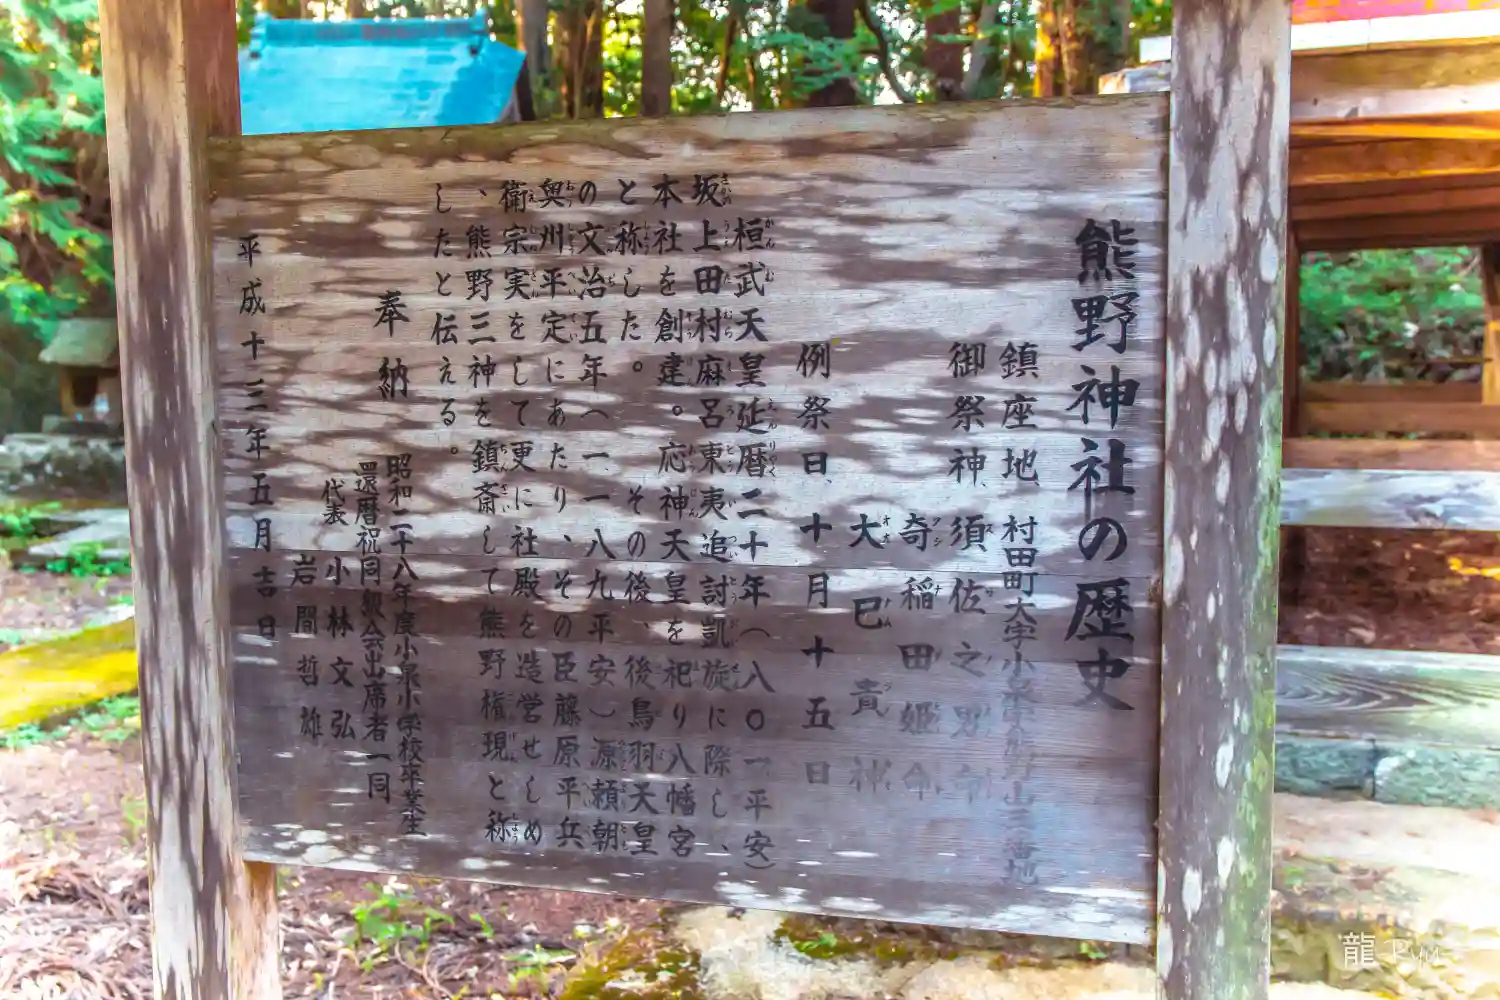 熊野神社の歴史
鎮座地、村田町大字小泉字熊野山三番地
御祭神、須佐之男命
奇稲田姫命
大巳貴神
例祭日、十月十五日
桓武天皇延暦二十年(八〇一平安)
坂上田村麻呂東夷追討凱旋に際し、
本社を創建。応神天皇を祀り八幡宮
と称した。その後、後鳥羽天皇
の文治五年(一一八九平安)源頼朝
奥州平定にあたり、その臣藤原平兵
衛宗実をして更に社殿を造営せしめ
、熊野三神を鎮斎して熊野権現と称
したと伝える。
奉納
昭和二十八年度小泉小学校卒業生
還暦祝同級会出席者一同
代表 小林文弘
岩間哲雄
平成十三年五月吉日
龍 Ryu